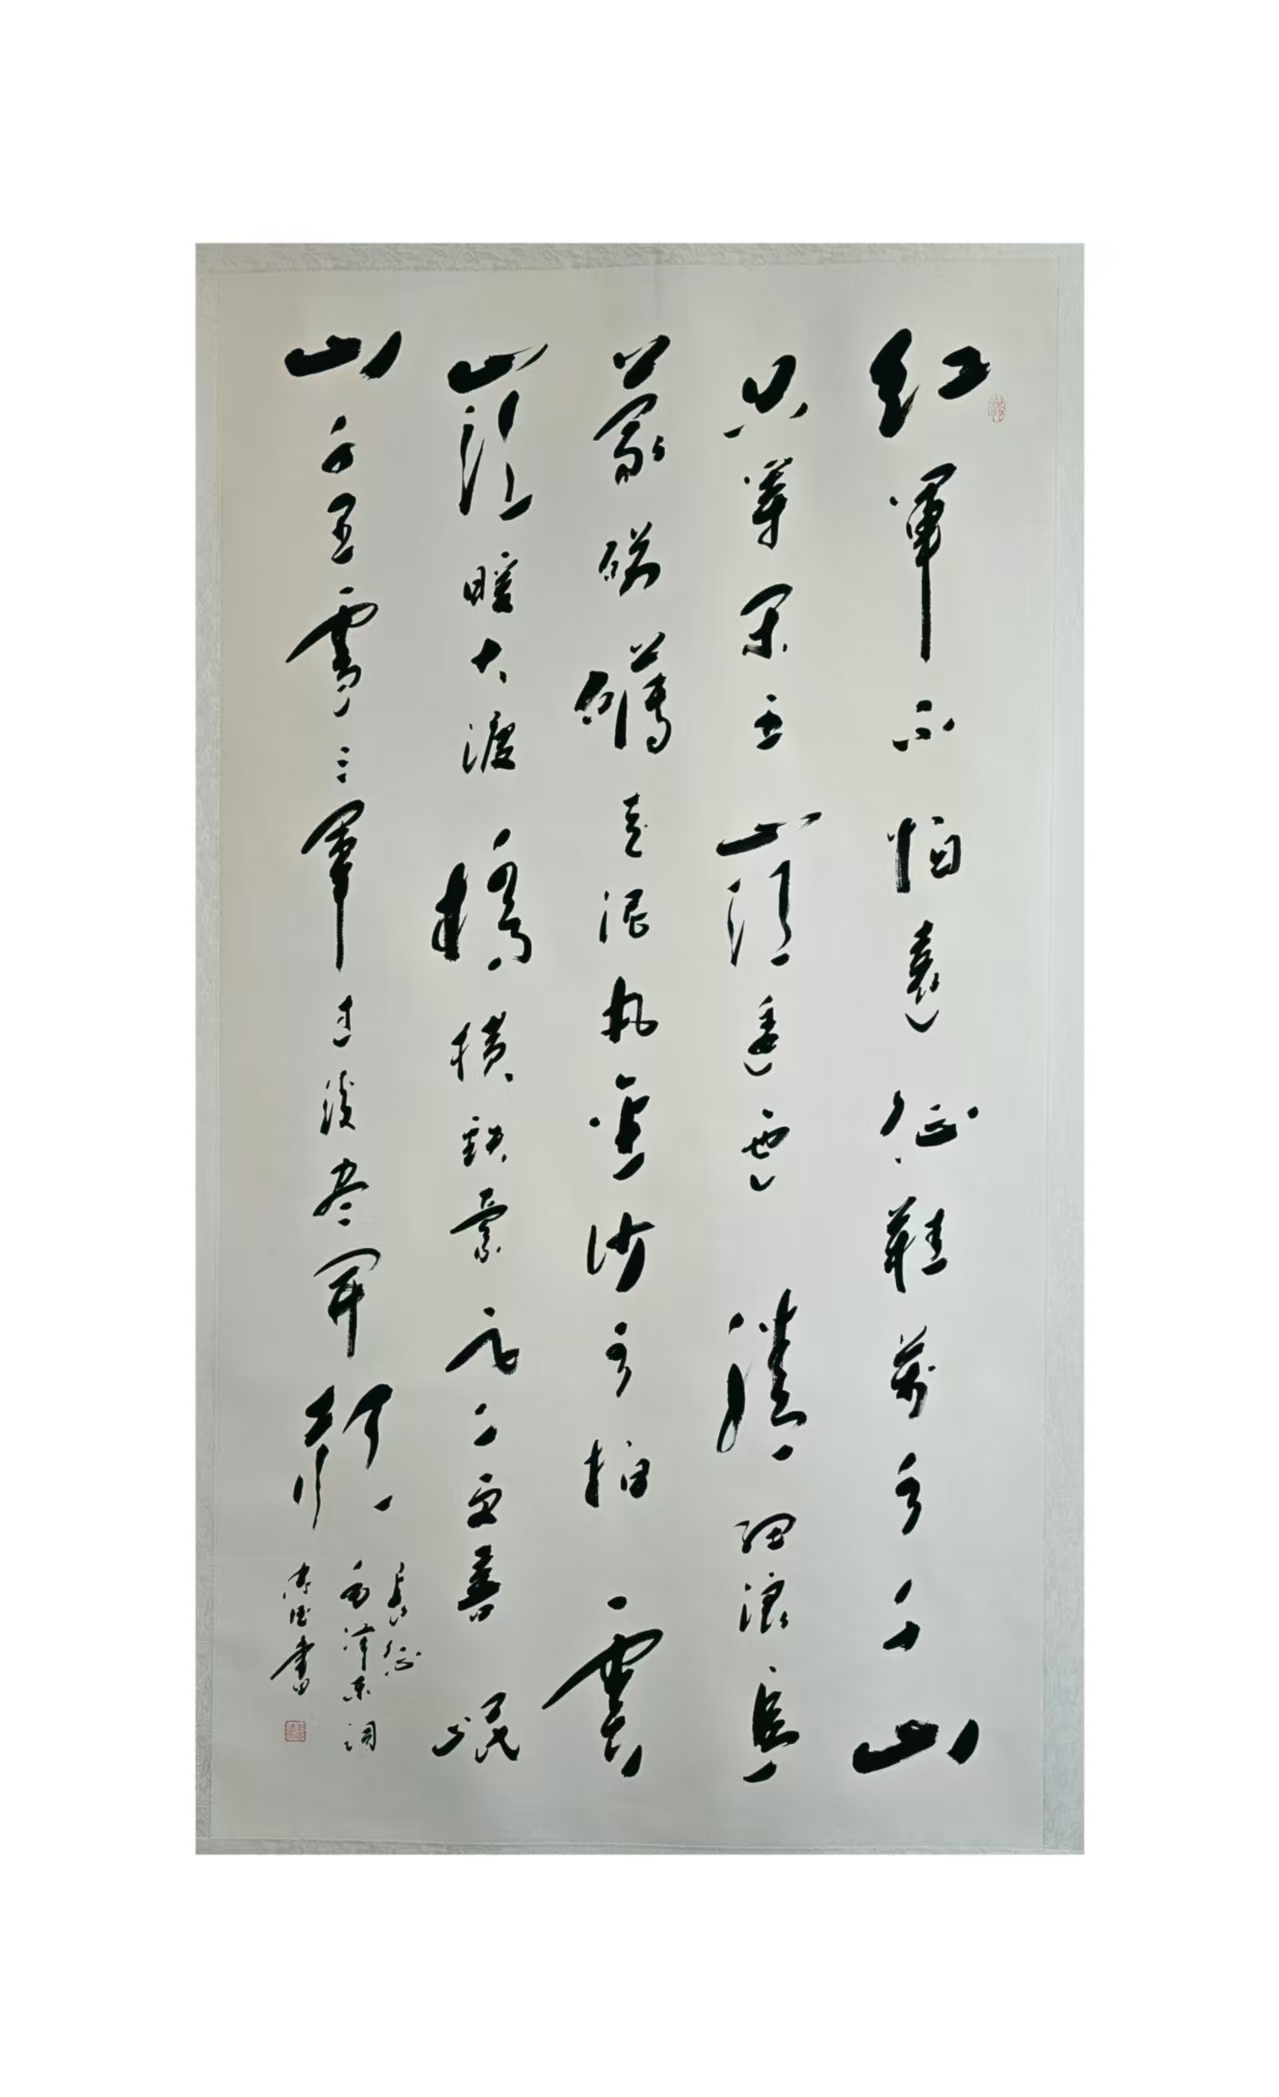 红軍不怕遠征難萬水千山
只等闲五嶺逶迤騰细浪烏
蒙磅礴走泥丸金沙水拍雲
崖暖大渡橋横鐵索寒更喜岷
山千里雪三軍过後尽开颜
長征
毛泽东词
書